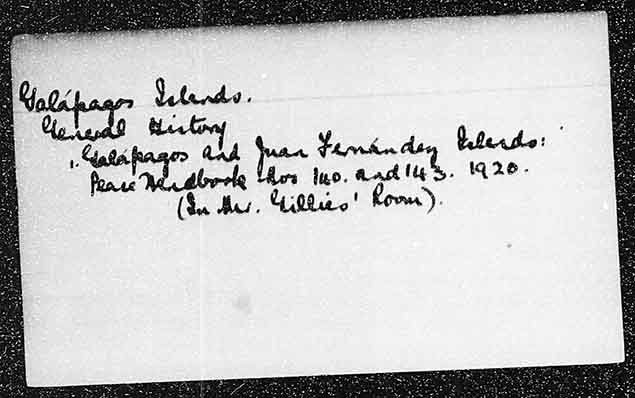 Galápagos Islands.
General History
1. Galápagos and Juan Fernández Islands:
Peace Handbook Nos 140. and 143. 1920.
(In Mr. Gillies' Room).